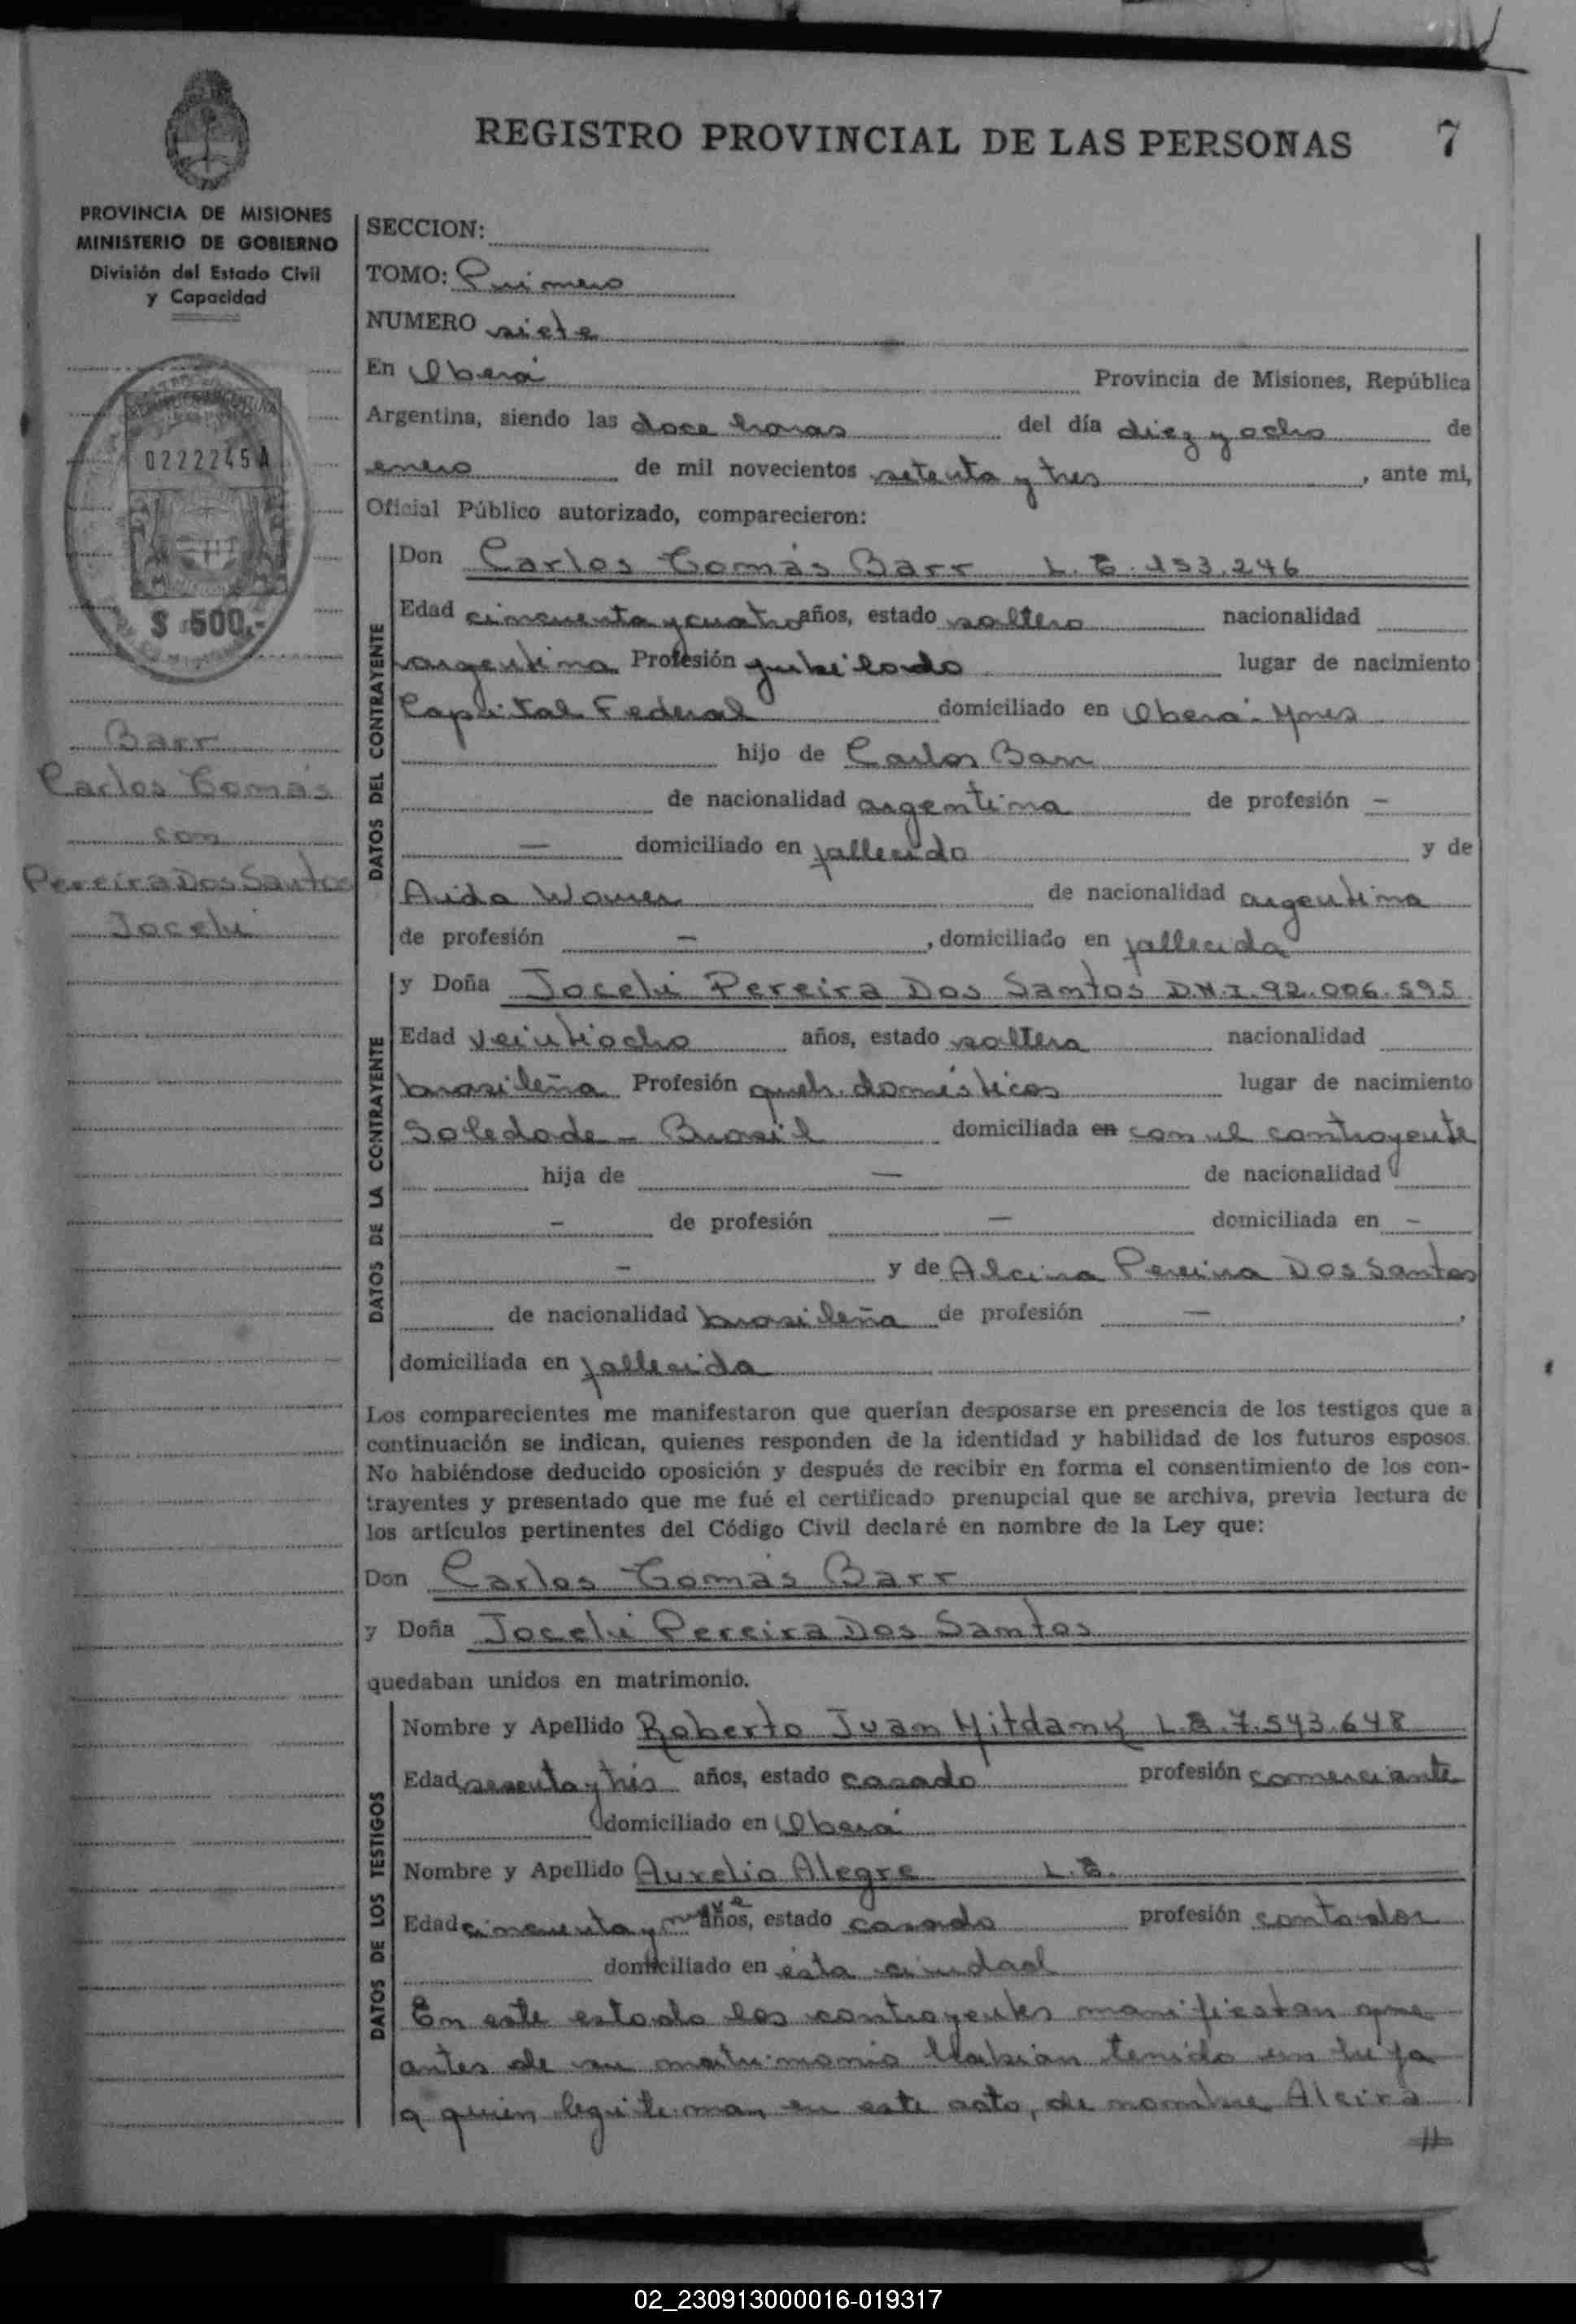 REGISTRO PROVINCIAL DE LAS PERSONAS 7
PROVINCIA DE MISIONES
MINISTERIO DE GOBIERNO
División del Estado Civil
y Capacidad
0222245A
$ 500.-
Barr
Carlos Tomás
con
Pereira Dos Santos
Joceli
SECCION:
TOMO: Primero
NUMERO siete
En Oberá Provincia de Misiones, República
Argentina, siendo las doce horas del día diez y ocho de
enero de mil novecientos setenta y tres, ante mi,
Oficial Público autorizado, comparecieron:
DATOS DEL CONTRAYENTE
Don Carlos Tomás Barr L.E. 153.246
Edad cincuenta y cuatro años, estado soltero nacionalidad
argentina Profesión jubilado lugar de nacimiento
Capital Federal domiciliado en Oberá - Mnes
hijo de Carlos Barr
de nacionalidad argentina de profesión —
— domiciliado en fallecido y de
Aida de nacionalidad argentina
de profesión —, domiciliado en fallecida
DATOS DE LA CONTRAYENTE
y Doña Joceli Pereira Dos Santos D.N.I. 92.006.595
Edad veintiocho años, estado soltera nacionalidad
brasileña Profesión queh. domésticos lugar de nacimiento
Soledade - Brasil domiciliada en con el contrayente
hija de — de nacionalidad
— de profesión — domiciliada en —
— y de Alcira Pereira Dos Santos
de nacionalidad brasileña de profesión —,
domiciliada en fallecida
Los comparecientes me manifestaron que querían desposarse en presencia de los testigos que a
continuación se indican, quienes responden de la identidad y habilidad de los futuros esposos.
No habiéndose deducido oposición y después de recibir en forma el consentimiento de los con-
trayentes y presentado que me fué el certificado prenupcial que se archiva, previa lectura de
los artículos pertinentes del Código Civil declaré en nombre de la Ley que:
Don Carlos Tomás Barr
y Doña Joceli Pereira Dos Santos
quedaban unidos en matrimonio.
DATOS DE LOS TESTIGOS
Nombre y Apellido Roberto Juan Mitdank L.E. 7.543.648
Edad sesenta y tres años, estado casado profesión comerciante
domiciliado en Oberá
Nombre y Apellido Aurelio Alegre L.E.
Edad cincuenta y nueve años, estado casado profesión contador
domiciliado en ésta ciudad
En este estado los contrayentes manifiestan que
antes de su matrimonio habian tenido un hija
a quien legitiman en este acto, de nombre Alcira
#
02_230913000016-019317